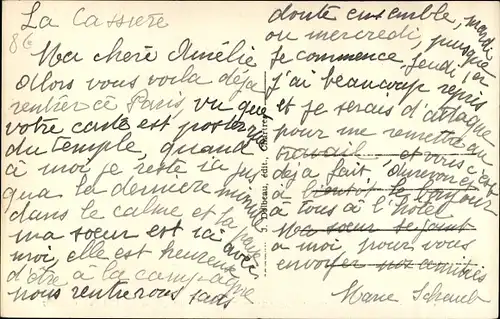 La Cassière
86
Ma chère Amélie
Alors vous voila déja
rentrer a Paris, vu que
votre carte est poster
du temple, quand
à moi je reste ici jus
qua la dernière minute
dans le calme et la paix
ma sœur est ici avec
moi, elle est heureuse
d'être à la campagne
nous rentrerons sans
doute ensemble, mardi
ou mercredi, puisque
je commence jeudi,
j'ai beaucoup repris
et je serais d'attaque
pour me remettre au
travail et voici c'est
déjà fait,
à bientôt le bonjour
à tous à l'hôtel
Ma sœur se joint
a moi pour vous
envoyer nos amitiés
Marie
édit.